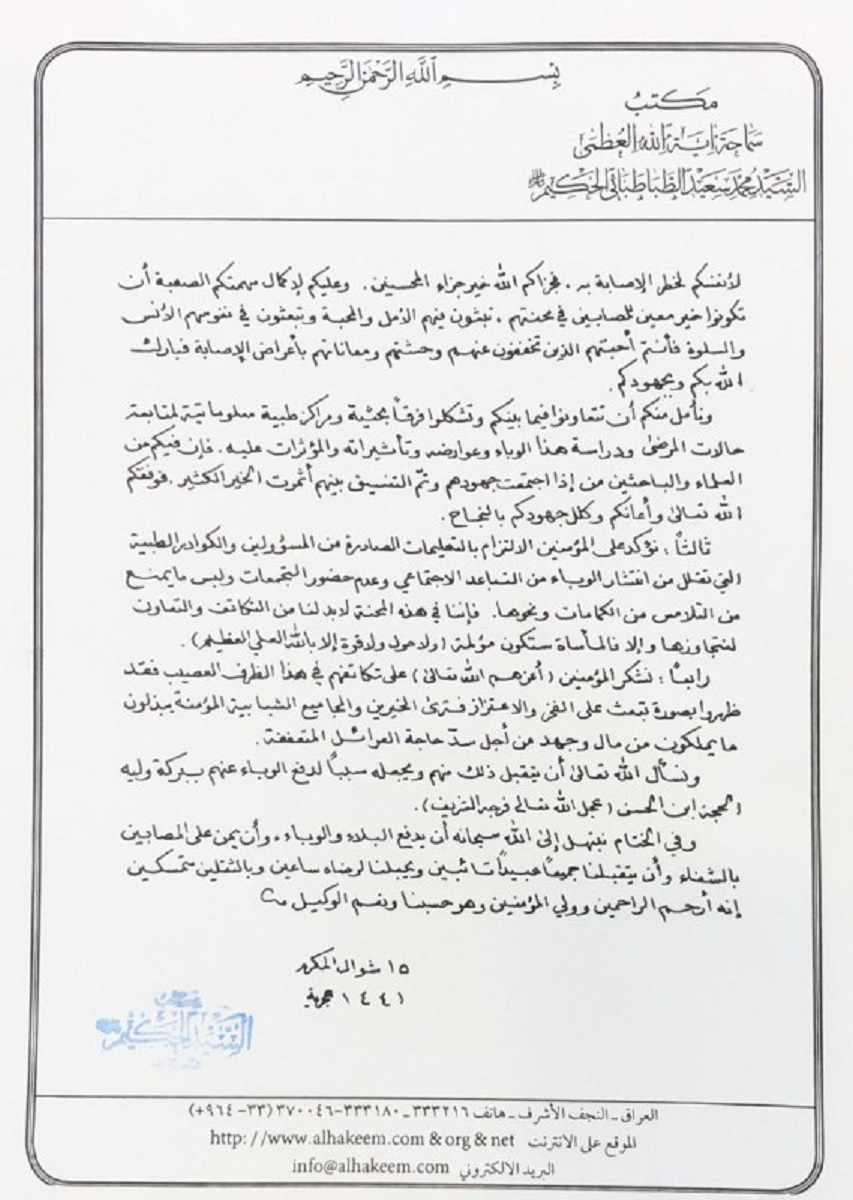 بِسْمِ اللَّهِ الرَّحْمَنِ الرَّحِيمِ
مكتب
سماحة آية الله العظمى
السيد محمد سعيد الطباطبائي الحكيم
لأنفسكم لخطر الإصابة به، فجزاكم الله خير جزاء المحسنين. وعليكم لإكمال مهمتكم الصعبة أن
تكونوا خير معين للمصابين في محنتهم، تبثون فيهم الأمل والمحبة وتبعثون في نفوسهم الأنس
والسلوة فأنتم أحبتهم الذين تخففون عنهم وحشتهم ومعاناتهم بأعراض الإصابة فبارك
الله بكم وبجهودكم.
ونأمل منكم أن تتعاونوا فيما بينكم وتشكلوا فرقاً بحثية ومراكز طبية معلوماتية لمتابعة
حالات المرضى ودراسة هذا الوباء وعوارضه وتأثيراته والمؤثرات عليه. فإن فيكم من
العلماء والباحثين من إذا اجتمعت جهودهم وتمّ التنسيق بينهم أثمرت الخير الكثير. فوفقكم
الله تعالى وأعانكم وكلل جهودكم بالنجاح.
ثالثاً: نؤكد على المؤمنين الالتزام بالتعليمات الصادرة من المسؤولين والكوادر الطبية
التي تقلل من انتشار الوباء من التباعد الاجتماعي وعدم حضور التجمعات ولبس ما يمنع
من التلامس من الكمامات ونحوها. فإننا في هذه المحنة لابد لنا من التكاتف والتعاون
لنتجاوزها وإلا فالمأساة ستكون مؤلمة (ولا حول ولا قوة إلا بالله العلي العظيم).
رابعاً: نشكر المؤمنين (أعزهم الله تعالى) على تكاتفهم في هذا الظرف العصيب فقد
ظهروا بصورة تبعث على الفخر والاعتزاز فترى الخيرين والمجاميع الشبابية المؤمنة يبذلون
ما يملكون من مال وجهد من أجل سدّ حاجة العوائل المتعففة.
ونسأل الله تعالى أن يتقبل ذلك منهم ويجعله سبباً لدفع الوباء عنهم ببركة وليه
الحجة ابن الحسن (عجل الله تعالى فرجه الشريف).
وفي الختام نبتهل إلى الله سبحانه أن يدفع البلاء والوباء، وأن يمن على المصابين
بالشفاء وأن يتقبلنا جميعاً عبيداً تائبين ويجعلنا لرضاه ساعين وبالثقلين متمسكين
إنه أرحم الراحمين وولي المؤمنين وهو حسبنا ونعم الوكيل
١٥ شوال المكرم
١٤٤١ هجرية
السيد الحكيم
العراق ـ النجف الأشرف ـ هاتف ٣٣٣٢١٦ ـ ٣٣٣١٨٠-٣٧٠٠٤٦ (٣٣-٩٦٤+)
الموقع على الانترنت http://www.alhakeem.com & org & net
البريد الالكتروني info@alhakeem.com